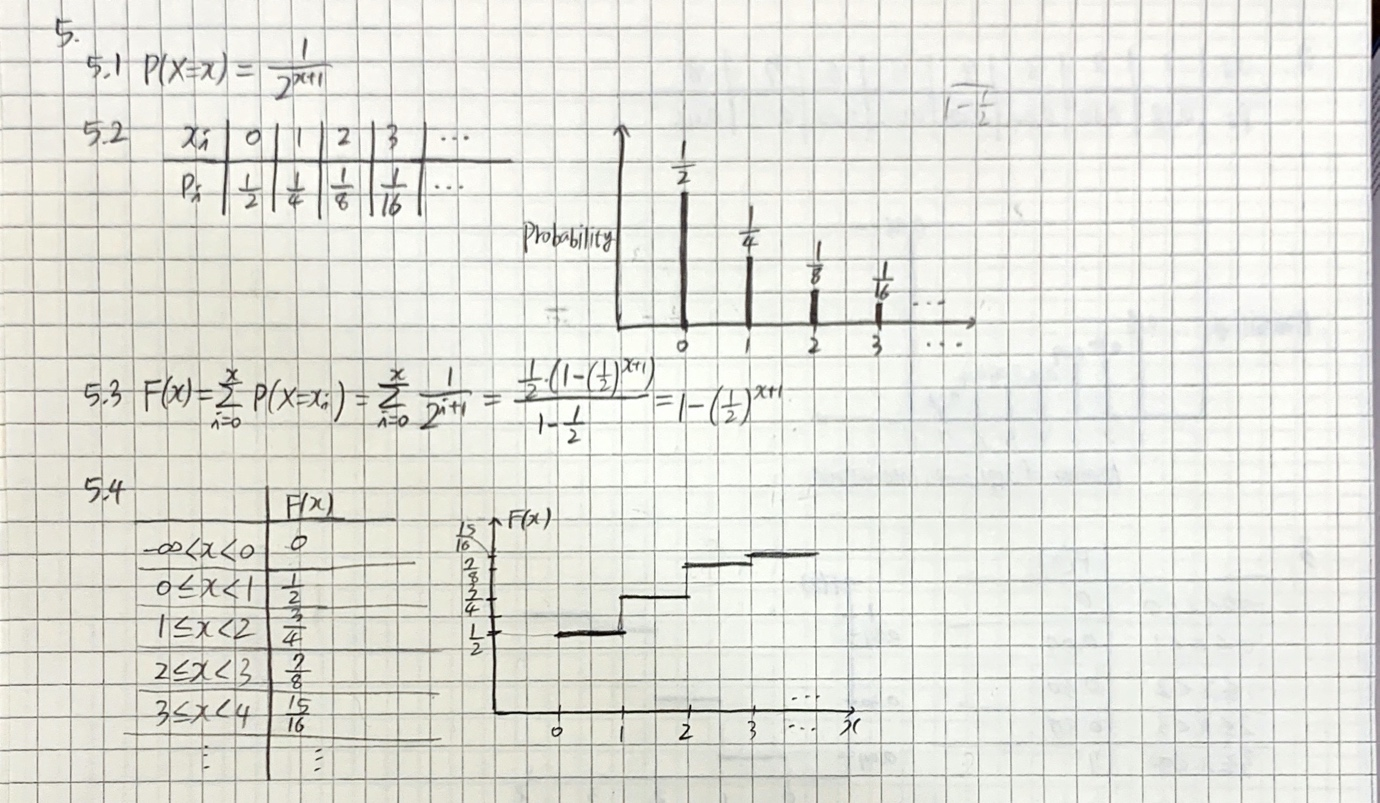 5.
5.1 P(X=x) = 1/2^(x+1)
5.2 xᵢ | 0 | 1 | 2 | 3 | ...
Pᵢ | 1/2 | 1/4 | 1/8 | 1/16 | ...
Probability
1/2 1/4 1/8 1/16 ...
0 1 2 3 ...
1-1/2
5.3 F(x) = Σ_{i=0}^{x} P(X=xᵢ) = Σ_{i=0}^{x} 1/2^(i+1) = (1/2·(1-(1/2)^(x+1)))/(1-1/2) = 1-(1/2)^(x+1)
5.4
F(x)
-∞<x<0 | 0
0≤x<1 | 1/2
1≤x<2 | 3/4
2≤x<3 | 7/8
3≤x<4 | 15/16
⋮ ⋮
F(x)
15/16
7/8
3/4
1/2
...
0 1 2 3 ... x